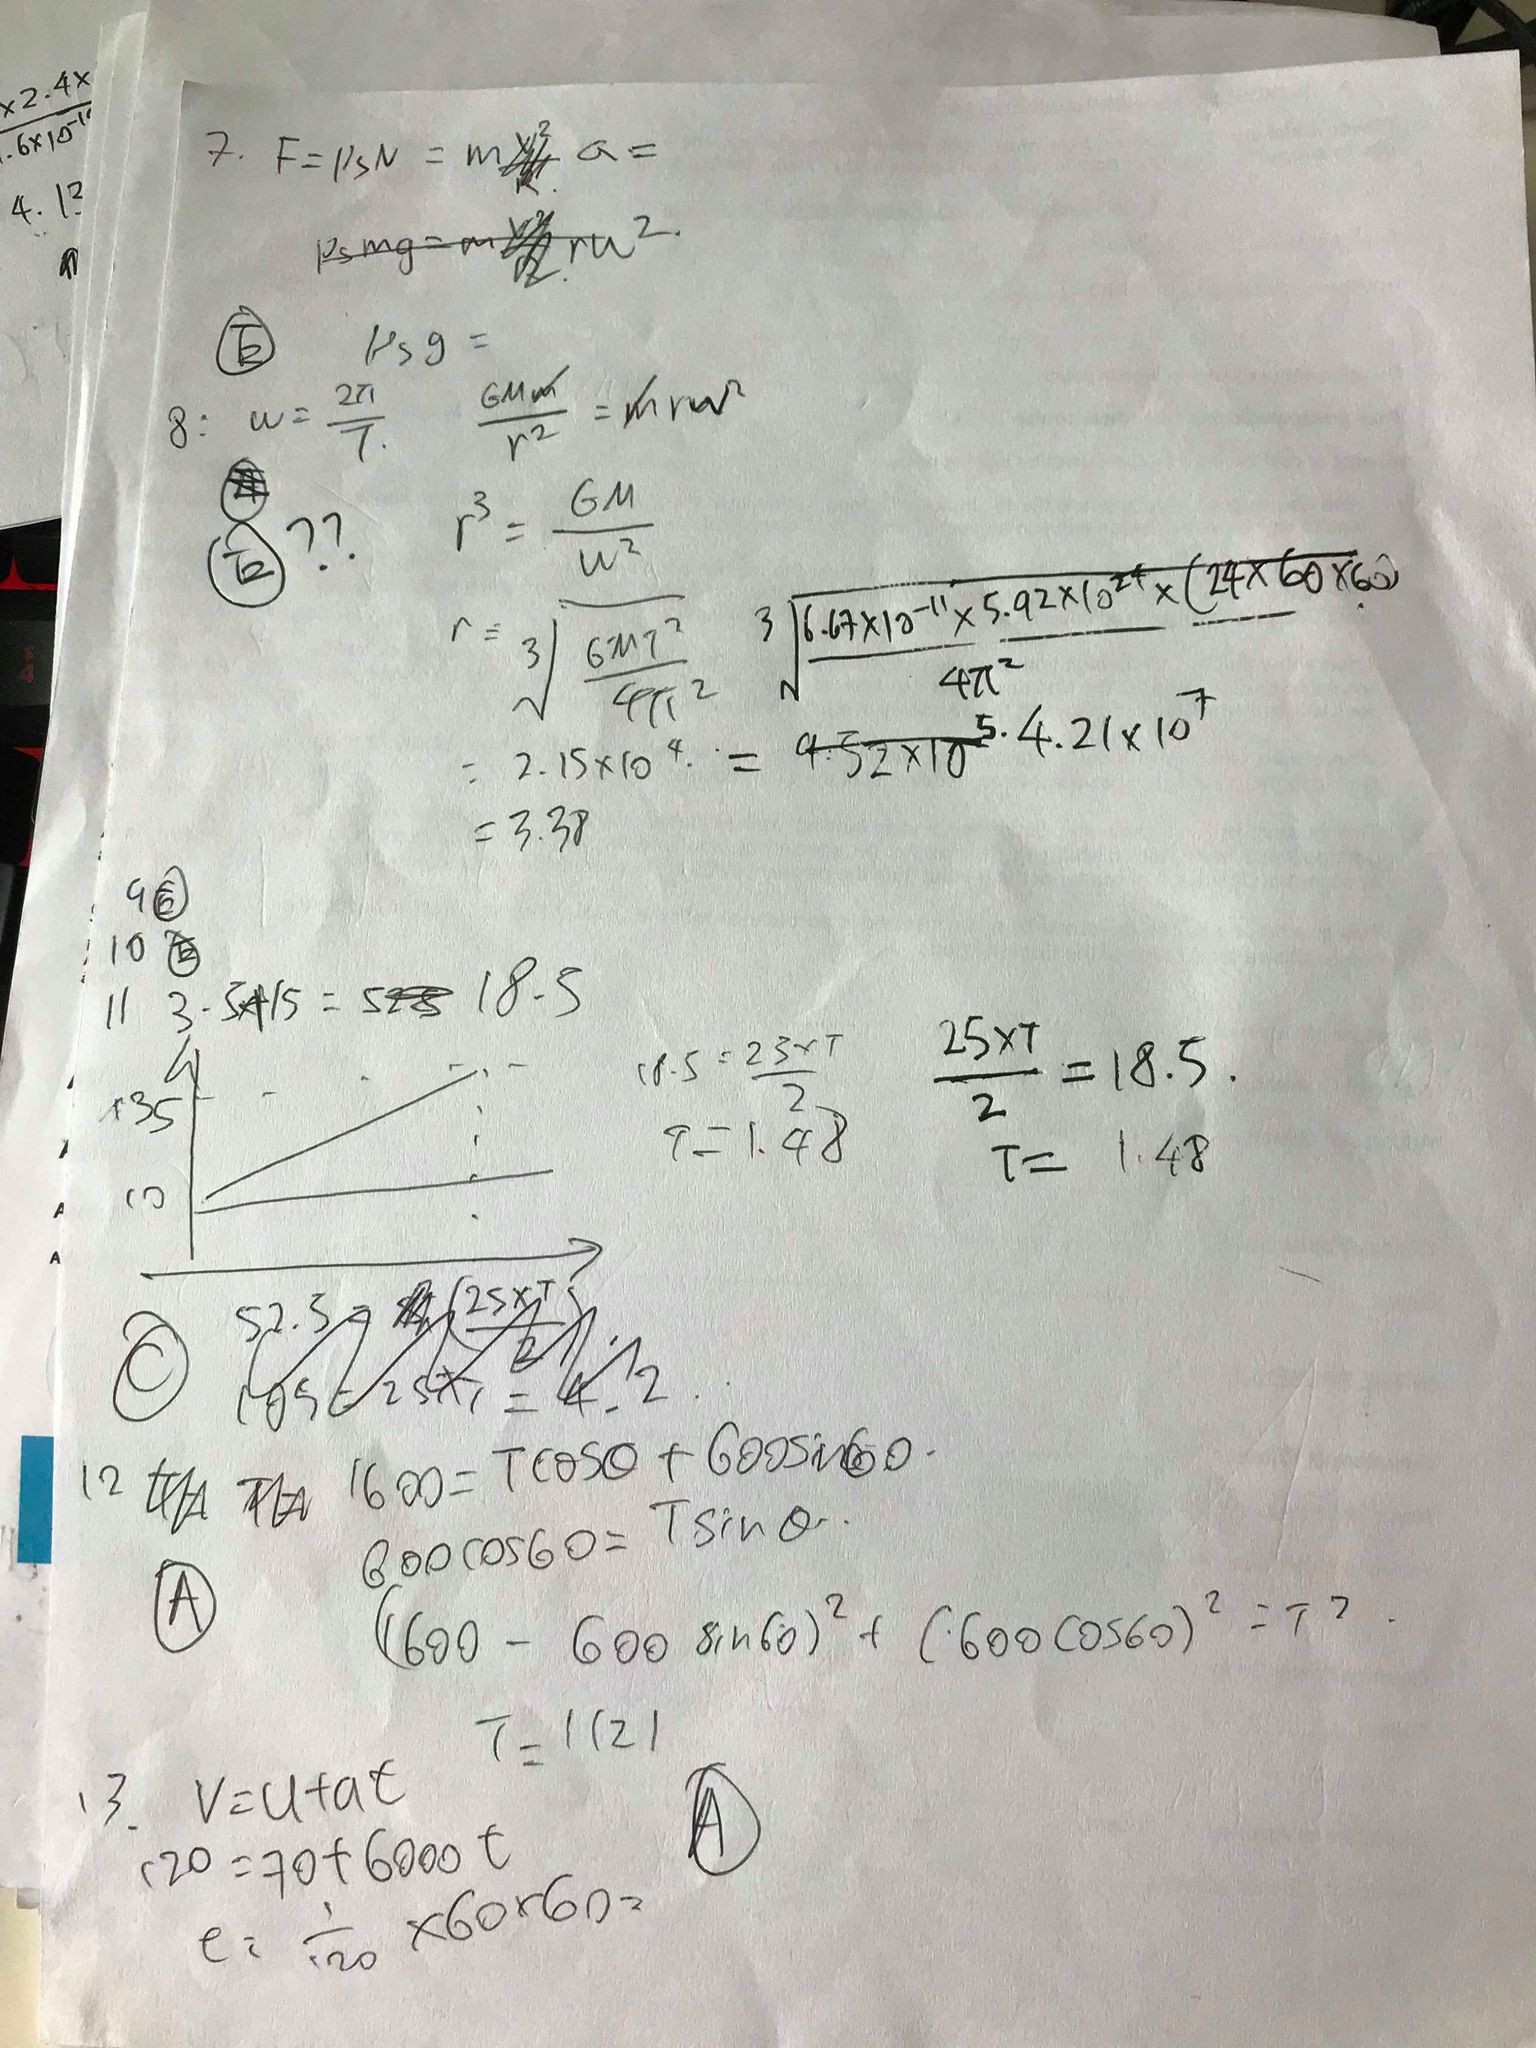 ×2.4×
.6×10
4.12
7. F=μsN = m a=
μsmg=m rω².
E μsg=
8: ω= 2π/T. GMm/r² = mrω²
E ??
r³= GM/ω²
r= ³√(GMT²/4π²) ³√(6.67×10⁻¹¹×5.92×10²⁴×(24×60×60)/4π²)
= 2.15×10⁴. = 9.52×10⁵. 4.21×10⁷
=3.38
9 E
10 E
11 3.5+15= 18.5
18.5=25×T/2 25×T/2 =18.5.
35
T=1.48 T= 1.48
10
C 52.5= (25×T/2)
105=25×T = 4.2
12 1600=Tcosθ+600sin60.
600cos60=Tsinθ.
A (1600 - 600 sin60)²+(600cos60)²=T².
T=1121
13. V=u+at A
120=70+6000t
t= 1/120 ×60×60=